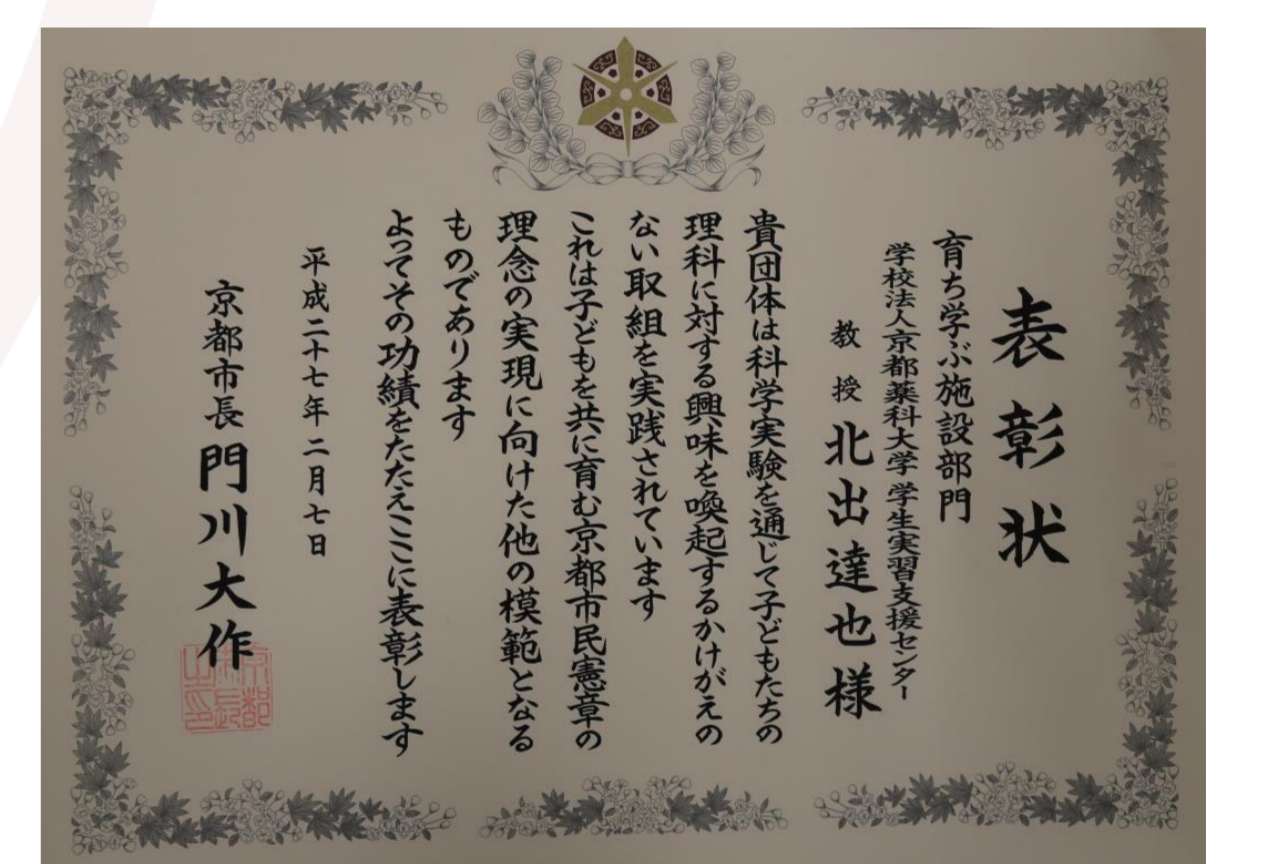 表彰状
育ち学ぶ施設部門
学校法人京都薬科大学 学生実習支援センター
教授 北出達也様
貴団体は科学実験を通じて子どもたちの
理科に対する興味を喚起するかけがえの
ない取組を実践されています
これは子どもを共に育む京都市民憲章の
理念の実現に向けた他の模範となる
ものであります
よってその功績をたたえここに表彰します
平成二十七年二月七日
京都市長 門川大作
京都市長之印